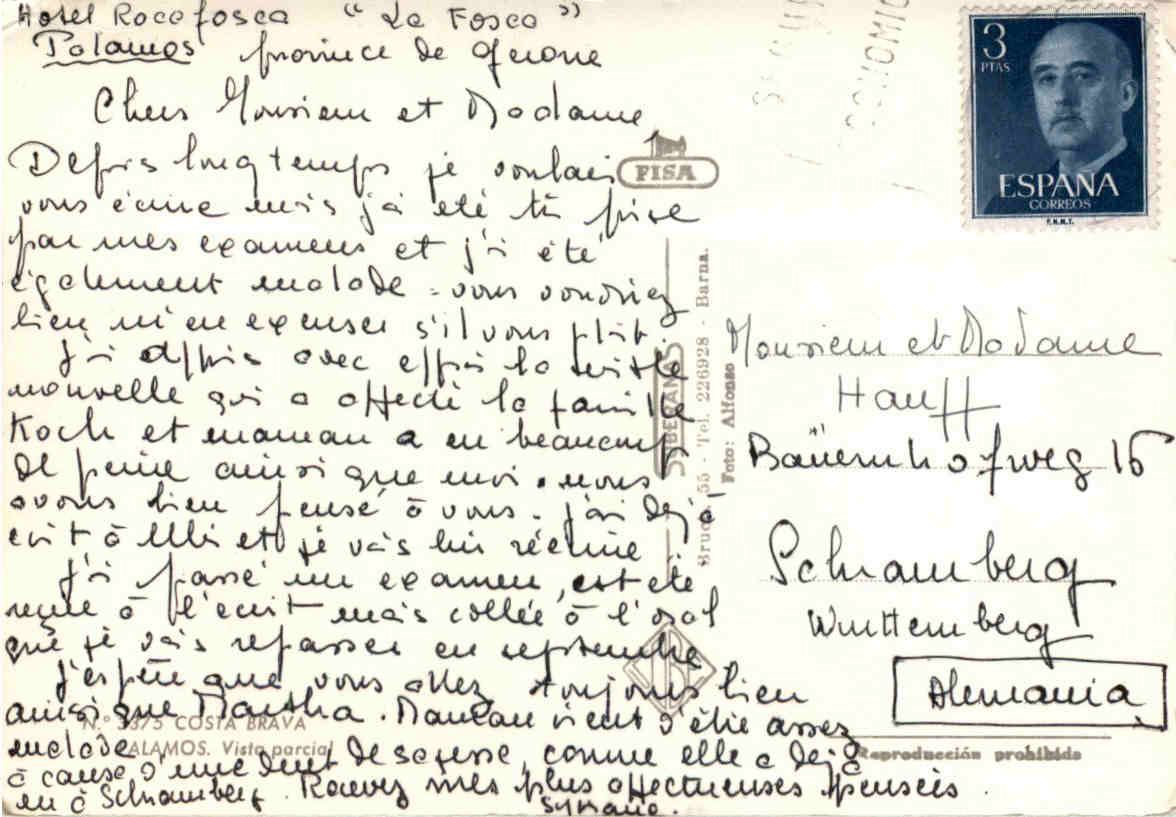 Hotel Rocafosca "La Fosca"
Palamos province de Gerone
Chers Monsieur et Madame
Depuis longtemps je voulais
vous écrire mais j'ai été très prise
par mes examens et j'ai été
également malade. vous voudriez
bien m'en excuser s'il vous plait.
J'ai appris avec effroi la triste
nouvelle qui a affecté la famille
Koch et maman a eu beaucoup
de peine ainsi que moi. nous
avons bien pensé à vous. j'ai déjà
écrit à et je vais lui réécrire
J'ai passé un examen, ai été
reçue à l'écrit mais collée à l'oral
que je vais repasser en septembre
J'espère que vous allez toujours bien
ainsi que Martha. Maman vient d'être assez
malade
à cause d'une dent de sagesse, comme elle a déjà
eu à Schramberg. Recevez mes plus affectueuses pensées.
Sylviane.
3 PTAS
ESPAÑA
CORREOS
F.N.M.T.
FISA
Foto: Alfonso
Bruch, 55 - Tel. 226928 - Barna.
Monsieur et Madame
Hauff
Baüernhofweg 16
Schramberg
Wurttemberg
Alemania
N.º 3375 COSTA BRAVA
PALAMOS. Vista parcial
Reproducción prohibida